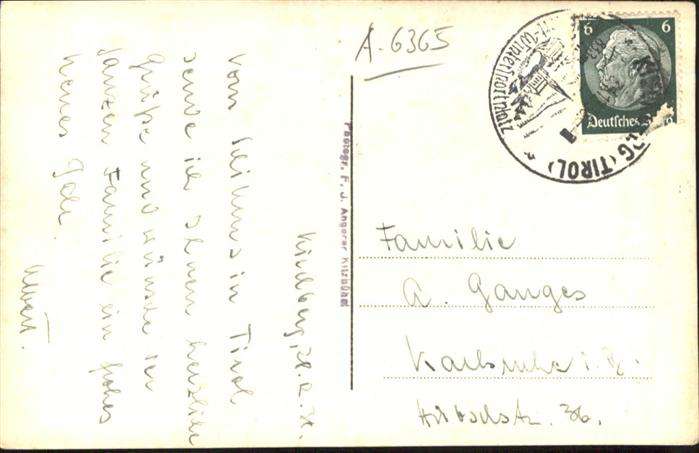 A. 6365
Kirchberg, 28.12.38.
vom Skikurs in Tirol
sende ich Ihnen herzliche
Grüße und wünsche der
ganzen Familie ein frohes
neues Jahr.
Albert.
Photogr. F. J. Angerer Kitzbühel
6 6
Deutsches Reich
Wintersportplatz
(TIROL)
Familie
A. Ganges
Karlsruhe i. B.
Hübschstr. 36.